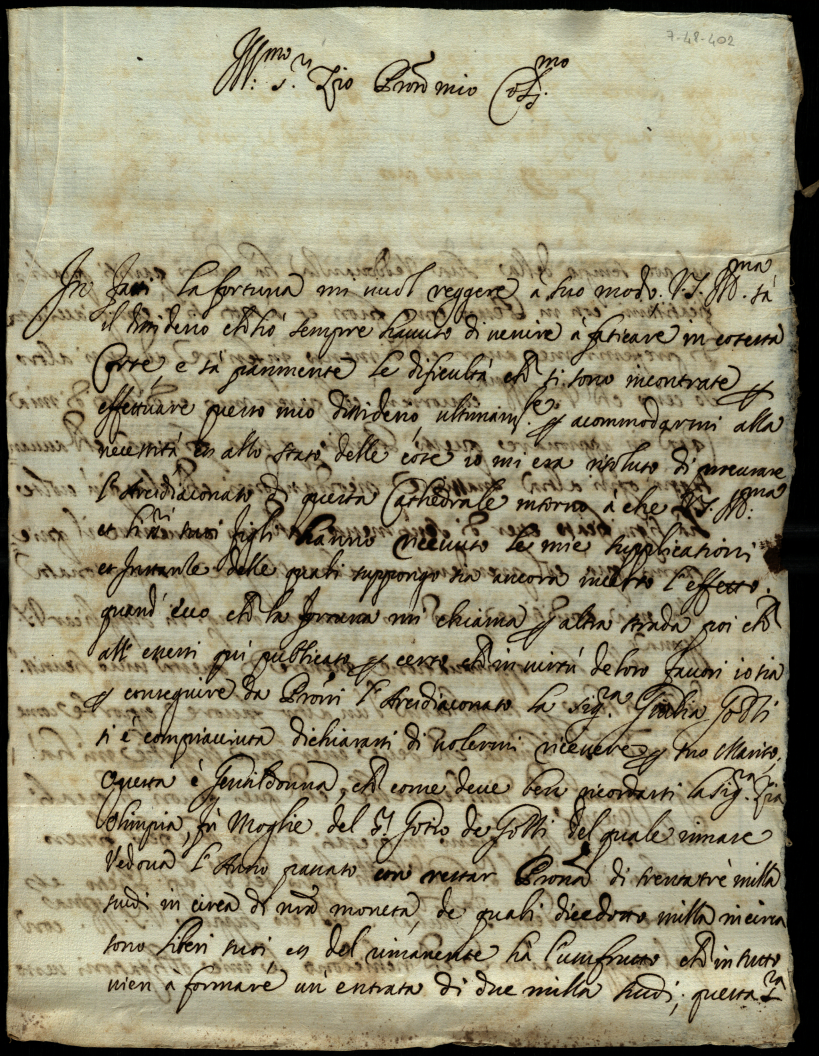 7-48-402
Ill.mo S.r Zio Pron mio Col.mo
In fatti la fortuna mi vuol reggere à suo modo. V.S. Ill.ma sà
il desiderio ch'hò sempre havuto di venire à faticare in cotesta
Corte e sà parimente le dificultà che si sono incontrate p
effettuare questo mio desiderio ultimam.te p accommodarmi alla
necessità et allo stato delle cose io mi era risoluto di procurare
l'Arcidiaconato di questa Cathedrale intorno à che V.S. Ill.ma
et li suoi figli hanno ricevuto le mie supplicationi
et Instanze delle quali suppongo sia ancora incerto l'effetto.
quand'ecco che la fortuna mi chiama p altra strada poi che
essersi qui publicato p certo che in virtù de loro favori io sia
p conseguire da Proni l'Arcidiaconato la Sig.ra Giulia Gotti
si è compiacciuta dichiararsi di volermi ricevere p suo Marito.
Questa è Gentildonna, che come deve ben ricordarsi la Sig.ra Zia
Olimpia, fù Moglie del S.r Gotio de Gotti del quale rimase
Vedova l'Anno passato con restar Prona di trentatrè milla
scudi in circa di nra moneta, de quali dicedotto milla incirca
sono liberi suoi et del rimanente hà l'usufrutto che in tutto
vien à formare un'entrata di due milla scudi; questa S.ra